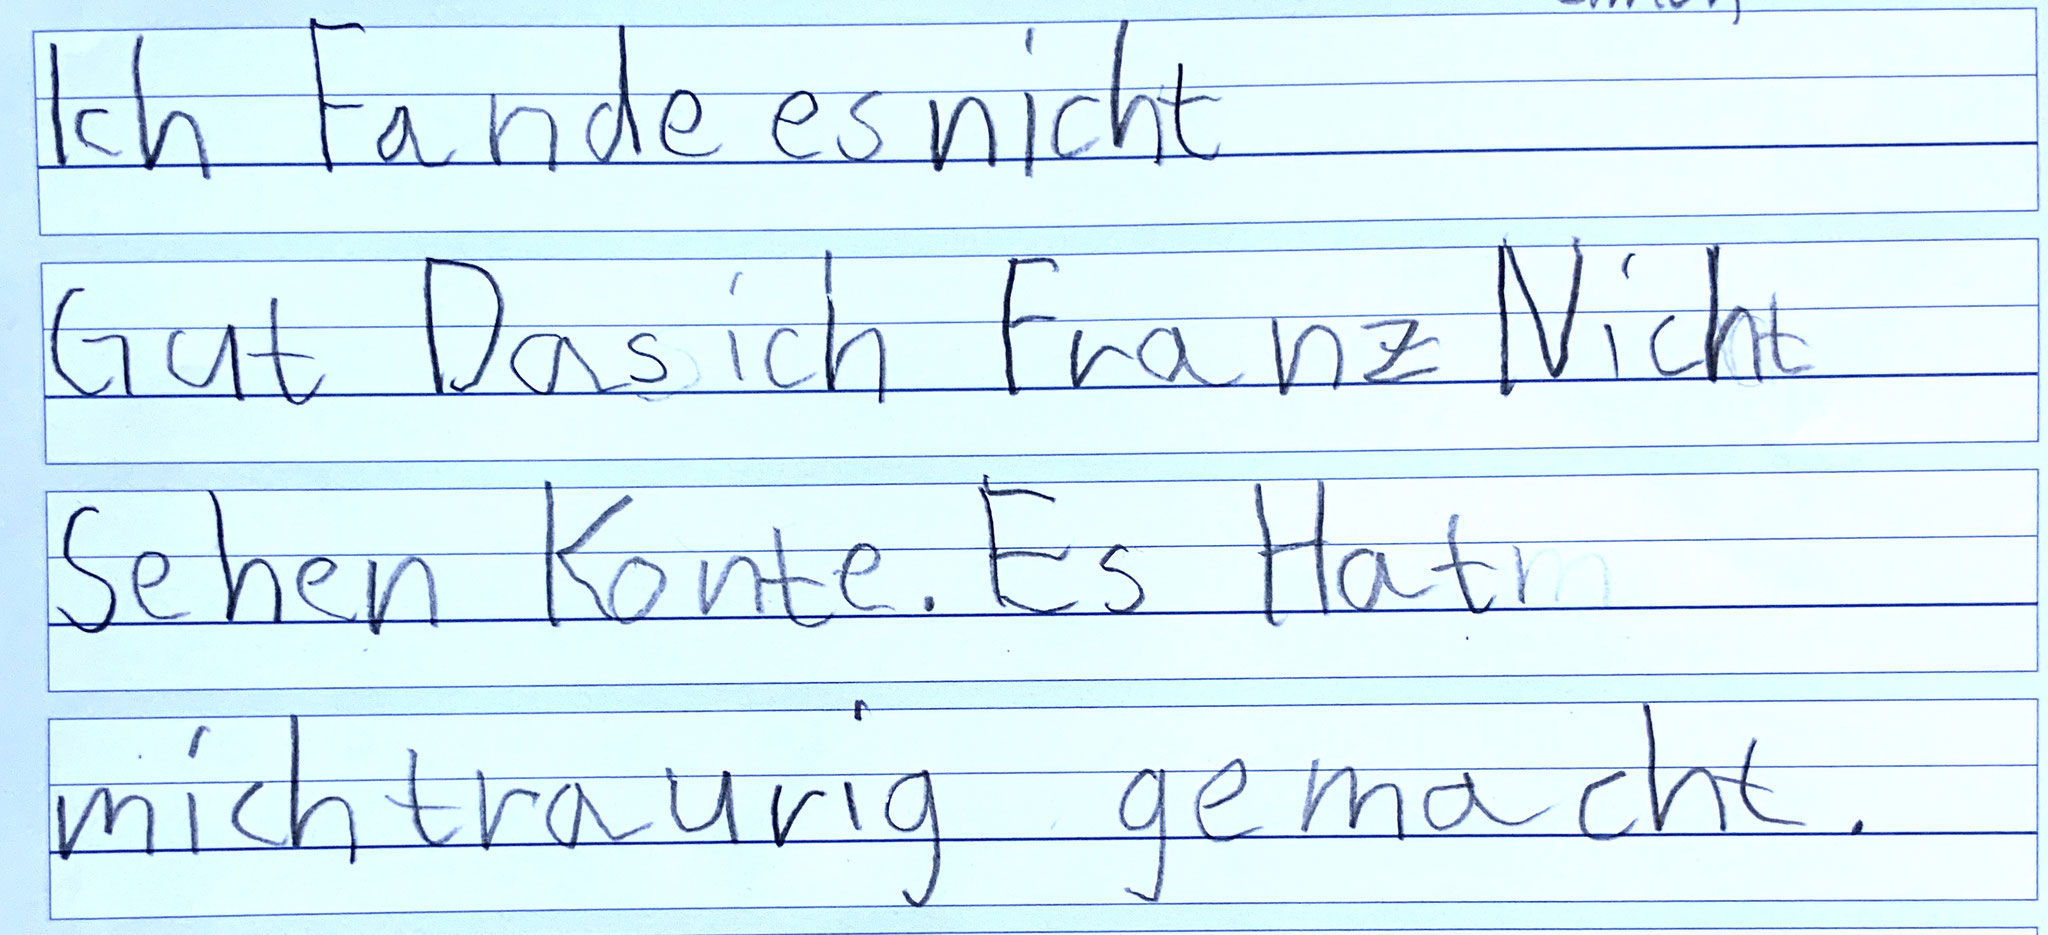 Ich Fande es nicht
Gut Das ich Franz Nicht
Sehen Konte. Es Hat
mich traurig gemacht.